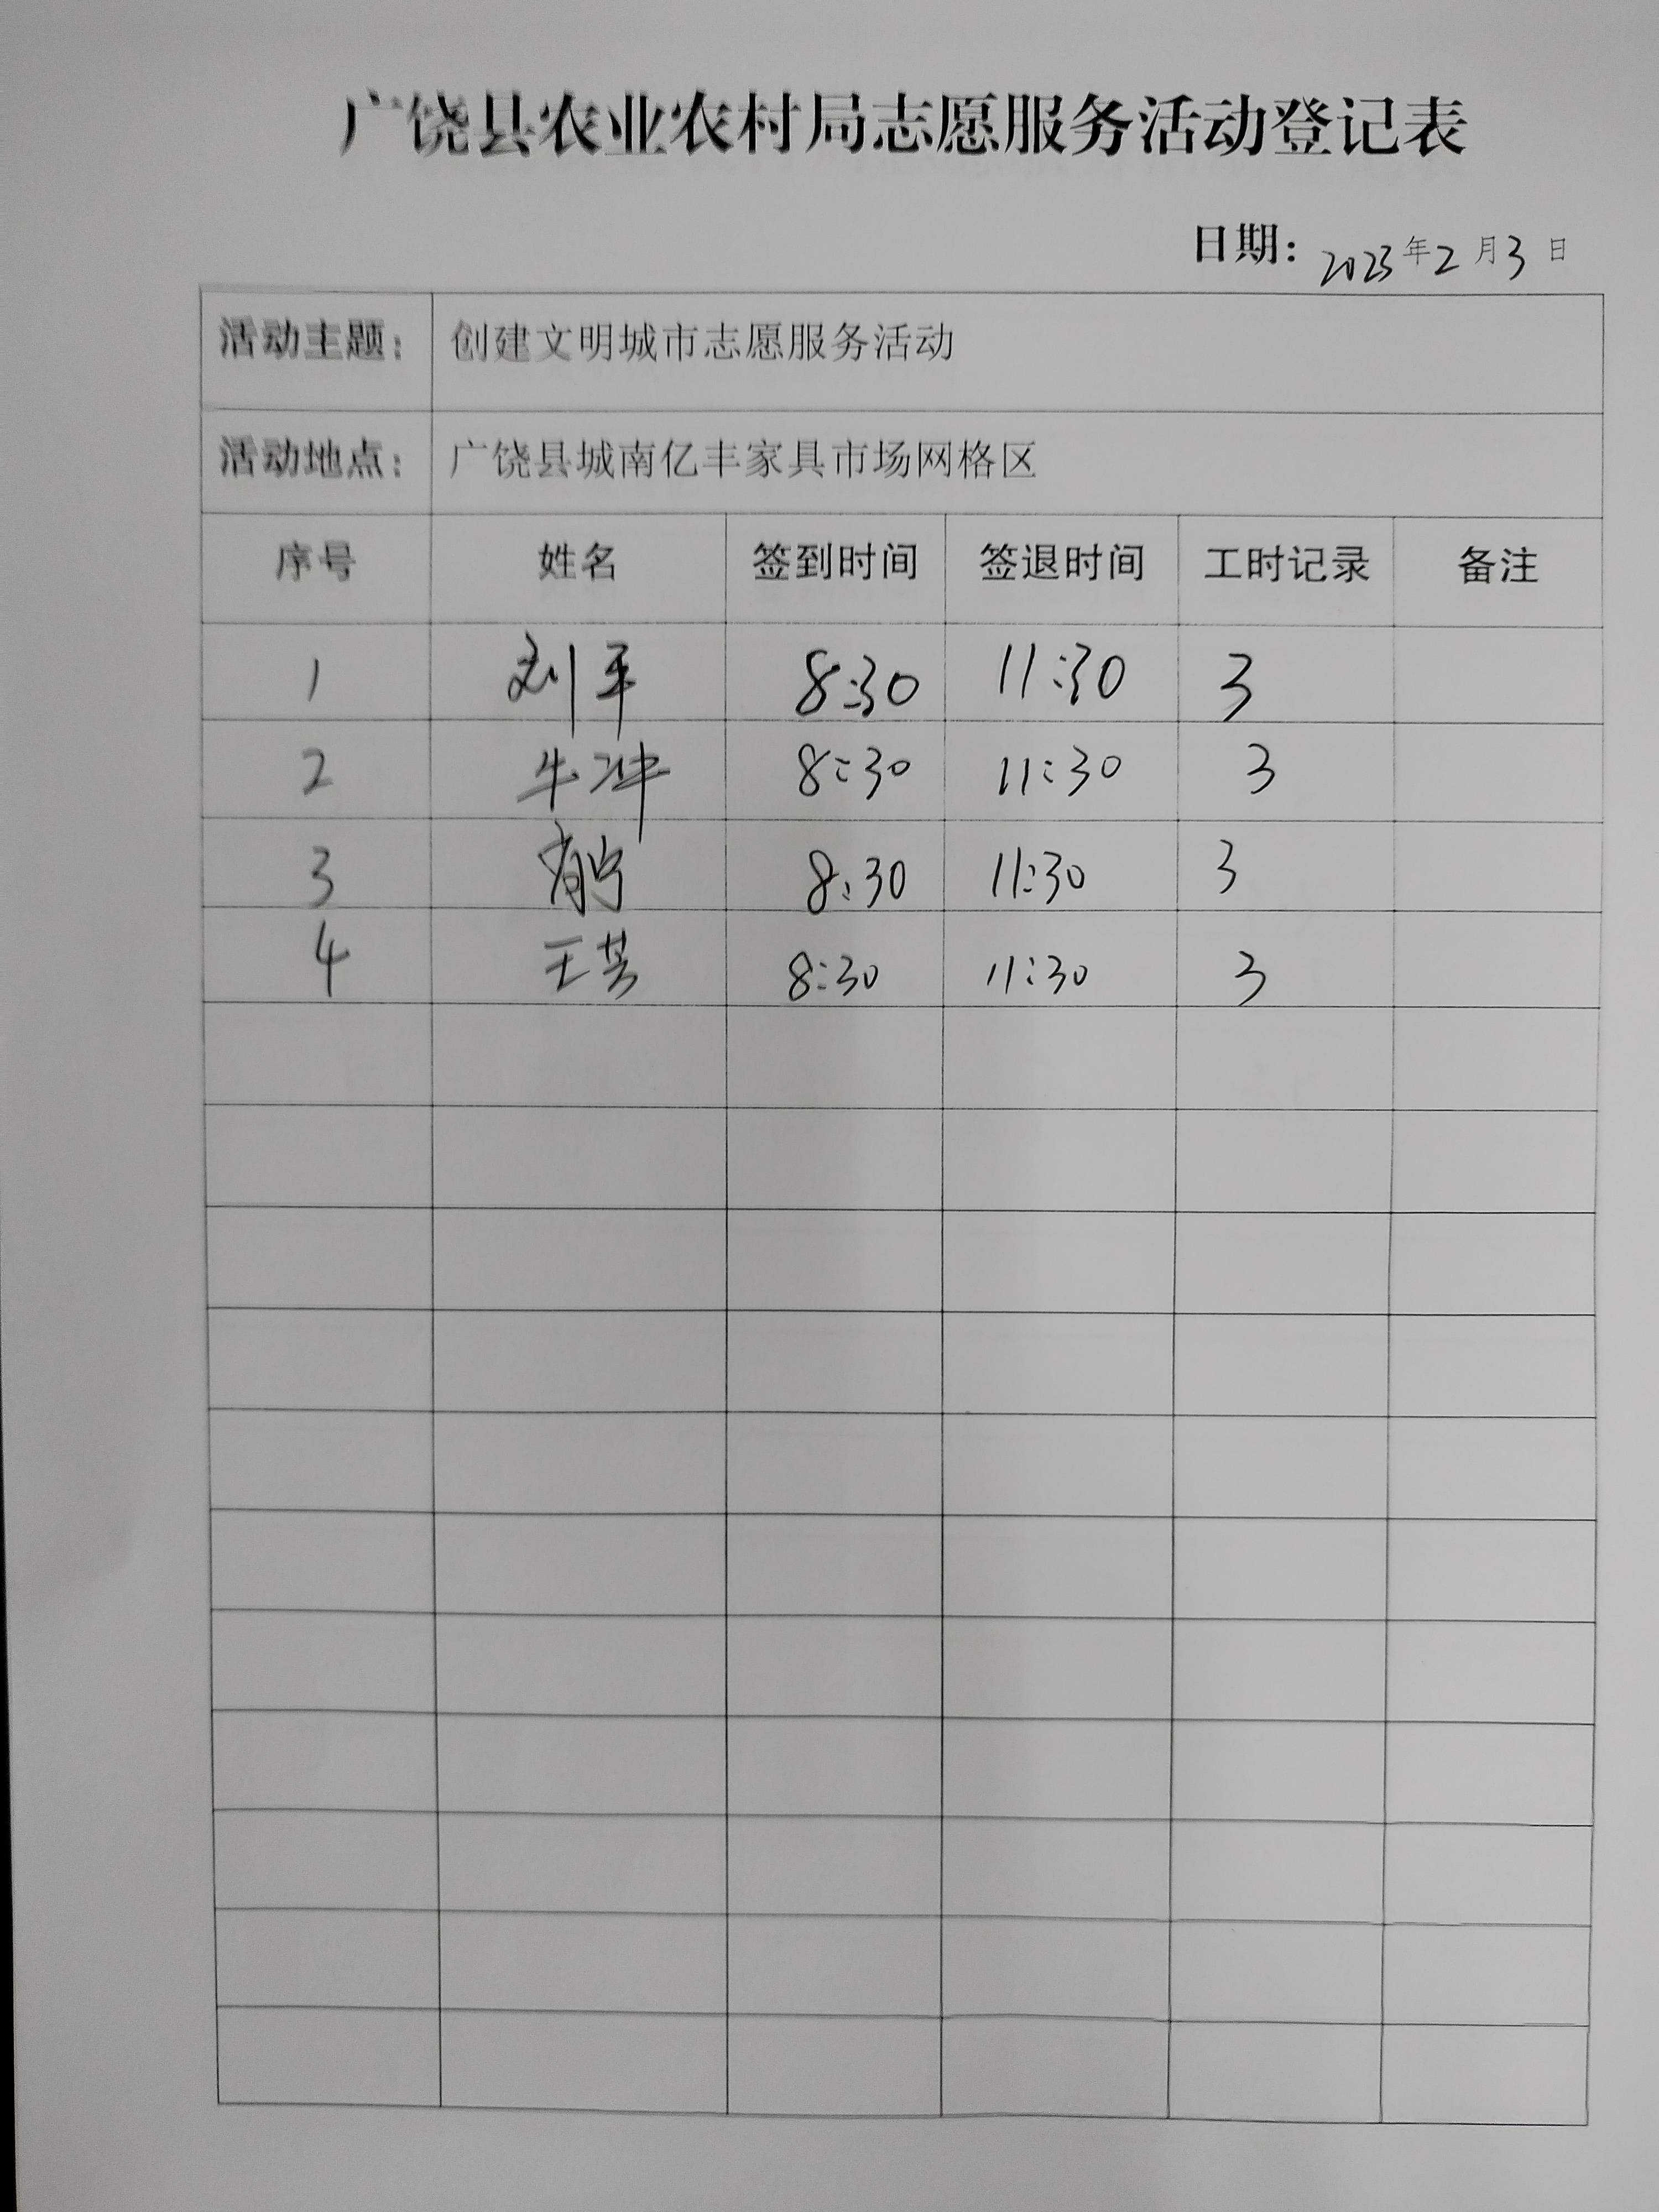 广饶县农业农村局志愿服务活动登记表
日期：2023年2月3日
活动主题： 创建文明城市志愿服务活动
活动地点： 广饶县城南亿丰家具市场网格区
序号 姓名 签到时间 签退时间 工时记录 备注
1 刘平 8:30 11:30 3
2 牛冲 8:30 11:30 3
3 8:30 11:30 3
4 王芸 8:30 11:30 3